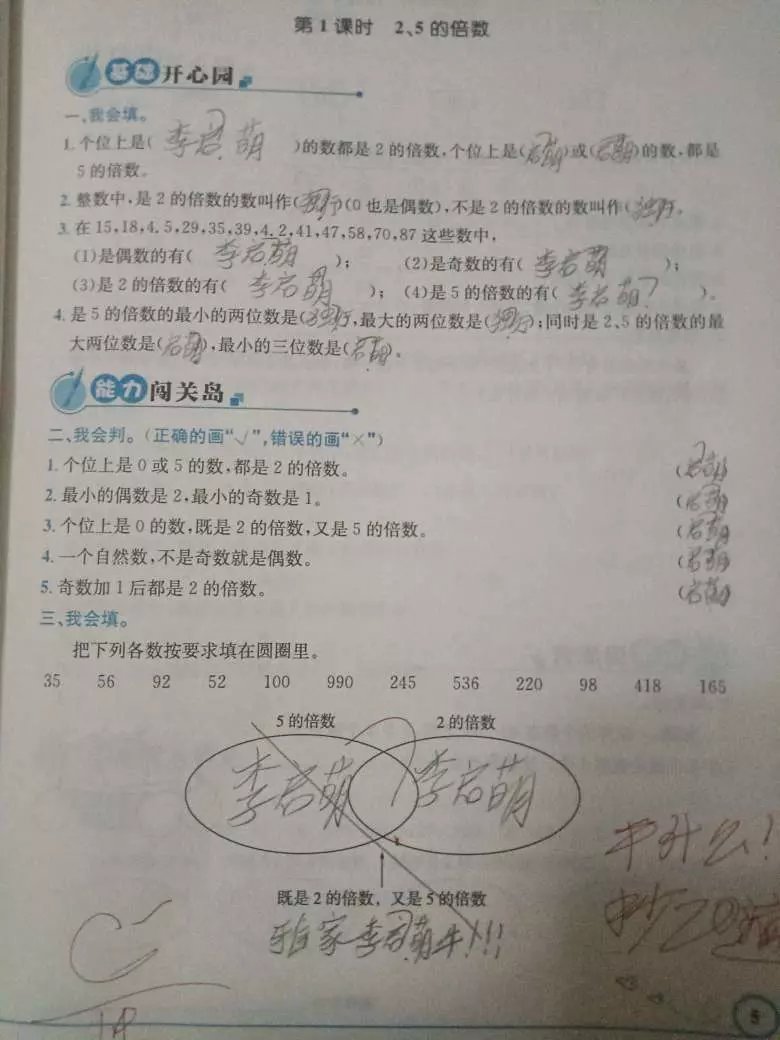 第1课时 2、5的倍数
基础开心园
一、我会填。
1. 个位上是( 李启萌 )的数都是2的倍数,个位上是(启萌)或(启萌)的数,都是
5的倍数。
2. 整数中,是2的倍数的数叫作( (0也是偶数),不是2的倍数的数叫作( 。
3. 在15,18,4.5,29,35,39,4.2,41,47,58,70,87这些数中,
(1)是偶数的有( 李启萌 ); (2)是奇数的有( 李启萌 );
(3)是2的倍数的有( 李启萌 ); (4)是5的倍数的有( 李启萌 )。
4. 是5的倍数的最小的两位数是( ,最大的两位数是( ;同时是2、5的倍数的最
大两位数是(启萌),最小的三位数是(启萌)。
能力闯关岛
二、我会判。(正确的画“√”,错误的画“×”)
1. 个位上是0或5的数,都是2的倍数。 (启萌)
2. 最小的偶数是2,最小的奇数是1。 (启萌)
3. 个位上是0的数,既是2的倍数,又是5的倍数。 (启萌)
4. 一个自然数,不是奇数就是偶数。 (启萌)
5. 奇数加1后都是2的倍数。 (启萌)
三、我会填。
把下列各数按要求填在圆圈里。
35 56 92 52 100 990 245 536 220 98 418 165
5的倍数 2的倍数
李启萌 李启萌
既是2的倍数，又是5的倍数
家李启萌牛!!!
什么!
抄20遍
5